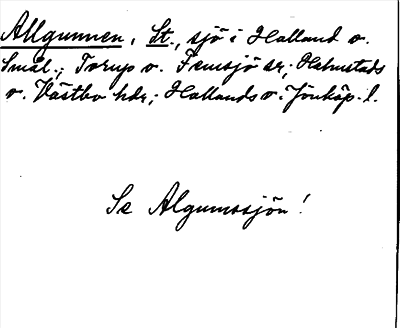 Allgunnen, St., sjö i Halland o.
Smål.; Torup o. Femsjö sr; Halmstads
o. Västbo hdr; Hallands o. Jönköp. l.
Se Algunnssjön!